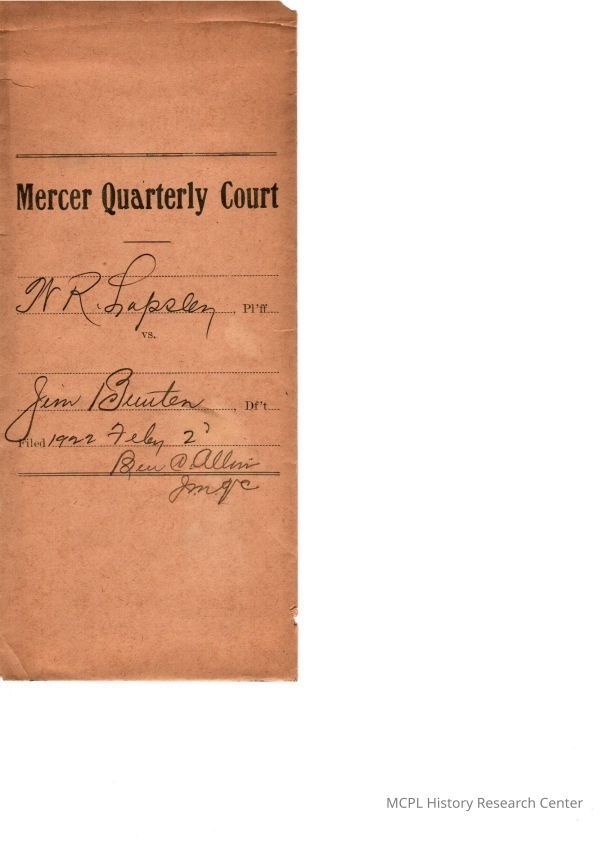 Mercer Quarterly Court
W R. Lapsley, Pl'ff.
vs.
Jim Bunten, Df't
Filed 1922 Feby 2
Ben C. Allin
JMQC
MCPL History Research Center